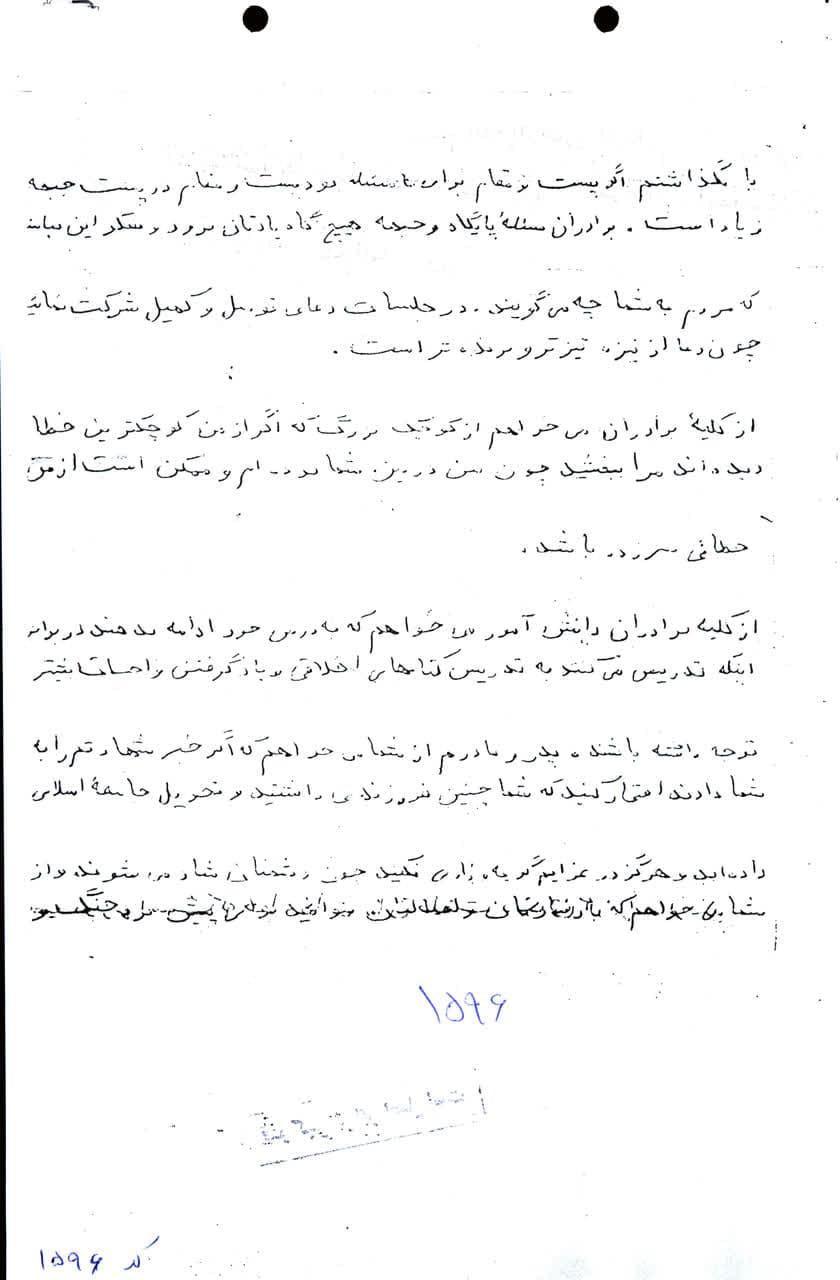 پا نگذاشتم اگر پست و مقام برای ما مسئله بود پست و مقام در پست جبهه
زیاد است . برادران مسئلهٔ پایگاه و جبهه هیچ گاه یادتان نرود و بفکر این نباشید
که مردم به شما چه می گویند . در جلسات دعای توسل و کمیل شرکت نمائید
چون دعا از نیزه تیزتر و برنده تر است .
از کلیهٔ برادران می خواهم از کوچک بزرگ که اگر از من کوچکترین خطا
دیده اند مرا ببخشید چون من در بین شما بوده ام و ممکن است از من
خطائی سرزده باشد .
از کلیه برادران دانش آموز می خواهم که به درس خود ادامه بدهند در برابر
اینکه تدریس می کنند به تدریس کتابهای اخلاقی و یاد گرفتن واجبات بیشتر
توجه داشته باشند . پدر و مادرم از شما می خواهم که اگر خبر شهادتم را به
شما دادند افتخار کنید که شما چنین فرزندی داشتید و تحویل جامعهٔ اسلامی
داده اید و هرگز در عزایم گریه و زاری نکنید چون دشمنان شاد می شوند و از
شما می خواهم که
۱۵۹۶
کد ۱۵۹۶